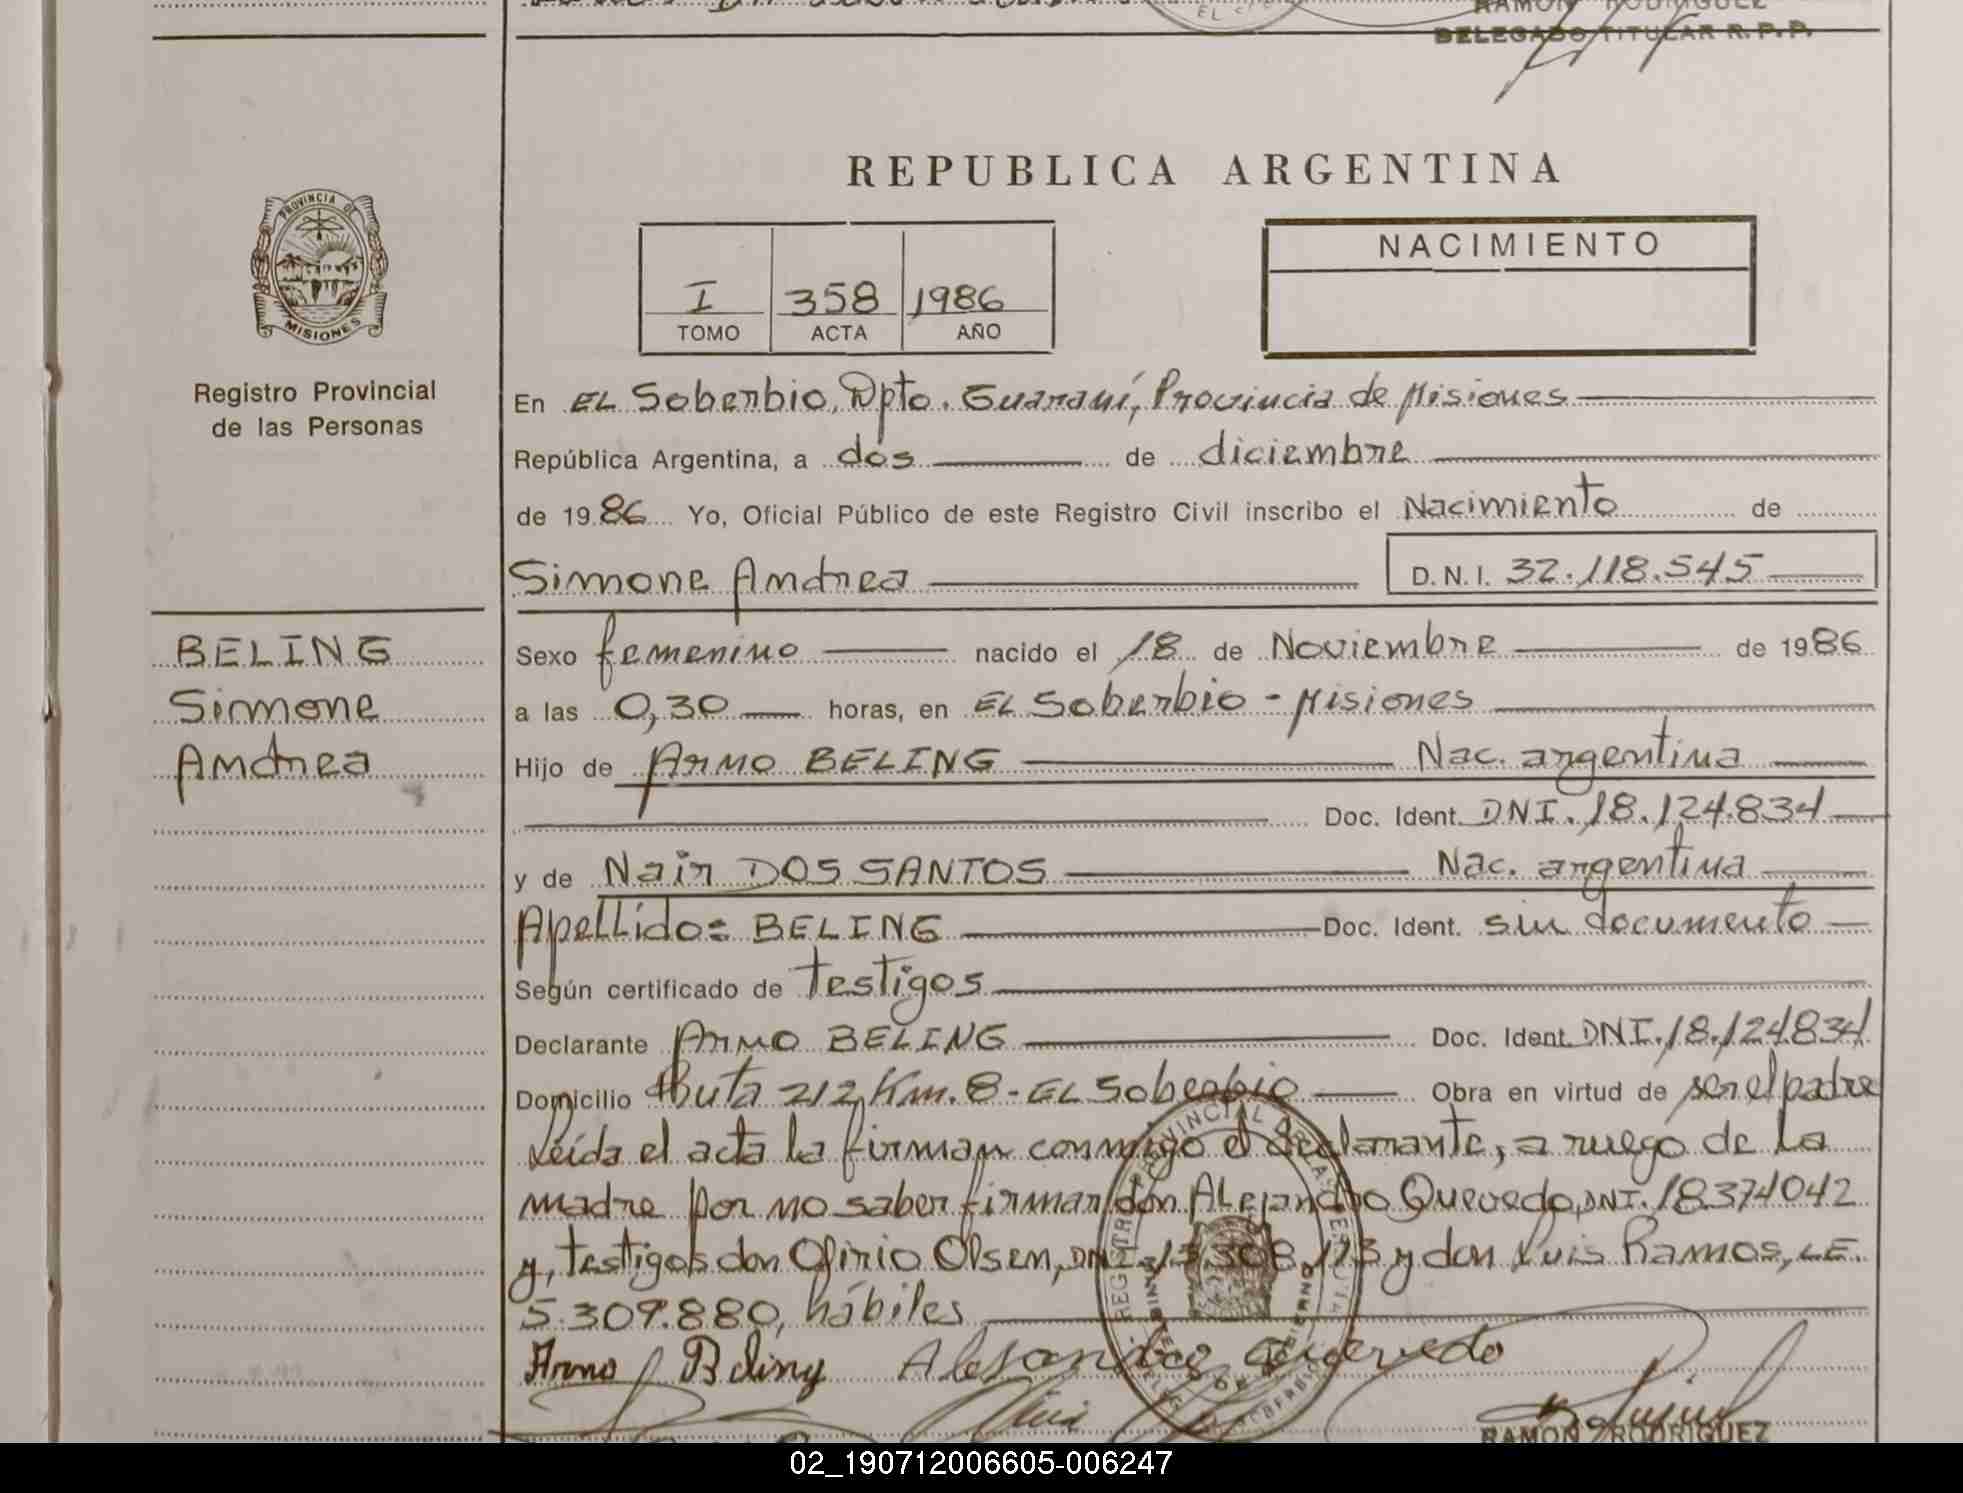 RAMON RODRIGUEZ
DELEGADO TITULAR R.P.P.
REPUBLICA ARGENTINA
PROVINCIA DE
MISIONES
Registro Provincial
de las Personas
I 358 1986
TOMO ACTA AÑO
NACIMIENTO
En EL Soberbio, Dpto. Guaraní, Provincia de Misiones
República Argentina, a dos de diciembre
de 1986 Yo, Oficial Público de este Registro Civil inscribo el Nacimiento de
Simone Andrea D.N.I. 32.118.545
BELING
Simone
Andrea
Sexo femenino nacido el 18 de Noviembre de 1986
a las 0,30 horas, en EL Soberbio - Misiones
Hijo de Arno BELING Nac. argentina
Doc. Ident. DNI. 18.124.834
y de Nair DOS SANTOS Nac. argentina
Apellido: BELING Doc. Ident. sin documento
Según certificado de testigos
Declarante Arno BELING Doc. Ident. DNI. 18.124834
Domicilio Ruta 212 Km. 8 - EL Soberbio Obra en virtud de ser el padre
Leída el acta la firman conmigo el declarante, a ruego de la
madre por no saber firmar don Alejandro Quevedo, DNI. 18374042
y, testigos don Ofirio Olsen, DNI. 13.308.113 y don Luis Ramos, L.E.
5.309.880, hábiles
Arno Beling Alejandro Quevedo
RAMON RODRIGUEZ
02_190712006605-006247